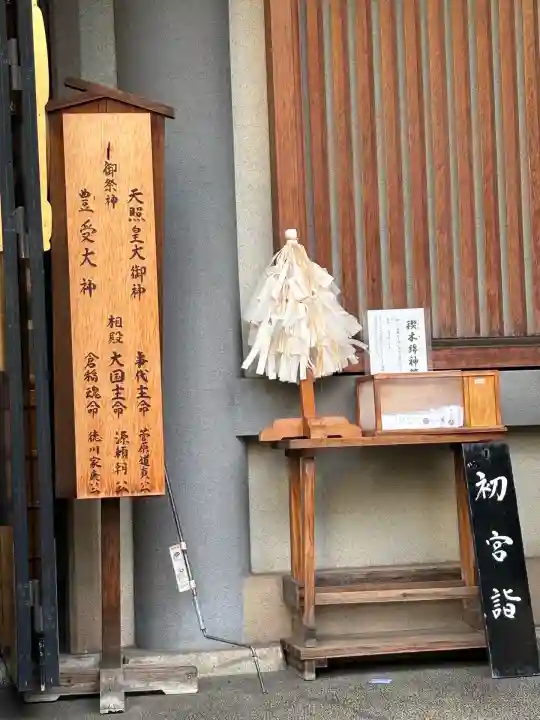 御祭神
天照皇大御神
豊受大神
相殿
事代主命
菅原道真公
大国主命
源頼朝公
倉稲魂命
徳川家康公
初宮詣